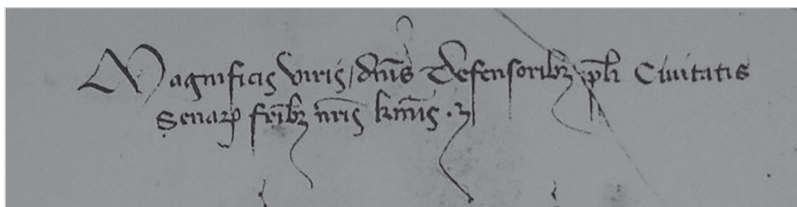 Magnificis viris / dñis defensoribꝫ ppli Civitatis
Senarꝝ fribꝫ nr̄is kmis · ꝫ